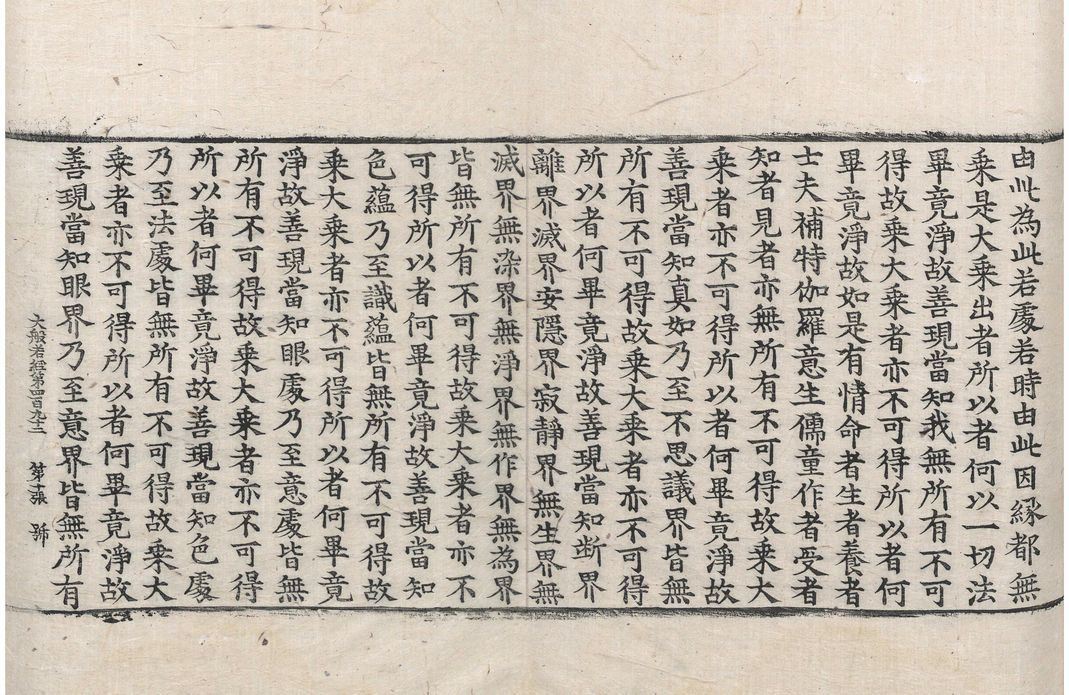 由此為此若處若時由此因緣都無
乗是大乗出者所以者何以一切法
畢竟淨故善現當知我無所有不可
得故乗大乗者亦不可得所以者何
畢竟淨故如是有情命者生者養者
士夫補特伽羅意生儒童作者受者
知者見者亦無所有不可得故乗大
乗者亦不可得所以者何畢竟淨故
善現當知真如乃至不思議界皆無
所有不可得故乗大乗者亦不可得
所以者何畢竟淨故善現當知断界
離界滅界安隱界寂靜界無生界無
滅界無染界無淨界無作界無為界
皆無所有不可得故乗大乗者亦不
可得所以者何畢竟淨故善現當知
色蘊乃至識蘊皆無所有不可得故
乗大乗者亦不可得所以者何畢竟
淨故善現當知眼處乃至意處皆無
所有不可得故乗大乗者亦不可得
所以者何畢竟淨故善現當知色處
乃至法處皆無所有不可得故乗大
乗者亦不可得所以者何畢竟淨故
善現當知眼界乃至意界皆無所有
大般若経第四百九十二 第十張 號